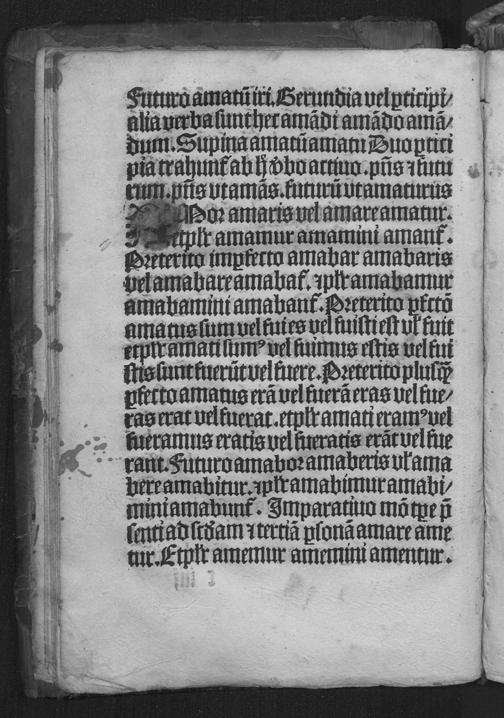 Futuro amatū iri. Gerundia vel ꝑticipi/
alia verba sunt hec amādi amādo amā/
dum. Supina amatū amatu Duo ꝑtici
pia trahunt᷑ ab h̄ v̄bo actiuo. pn̄s ⁊ futu
rum. pn̄s vt amās. futurū vt amaturus
Mor amaris vel amare amatur.
etpl̄r amamur amamini amant᷑.
Preterito imꝑfecto amabar amabaris
vel amabare amabat᷑. ⁊pl̄r amabamur
amabamini amabant᷑. Preterito ꝑfctō
amatus sum vel fui es vel fuisti est vl̄ fuit
etpl̄r amati sumꝰ vel fuimus estis vel fui
stis sunt fuerūt vel fuere. Preterito plusqꝫ̄
ꝑfecto amatus erā vel fuerā eras vel fue/
ras erat vel fuerat. etpl̄r amati eramꝰ vel
fueramus eratis vel fueratis erāt vel fue
rant. Futuro amabor amaberis vl̄ ama
bere amabitur. ⁊pl̄r amabimur amabi/
mini amabunt᷑. Imparatiuo mō tꝑe p̄
senti ad scd̄am ⁊ tertiā ꝑsonā amare ame
tur. Etpl̄r amemur amemini amentur.